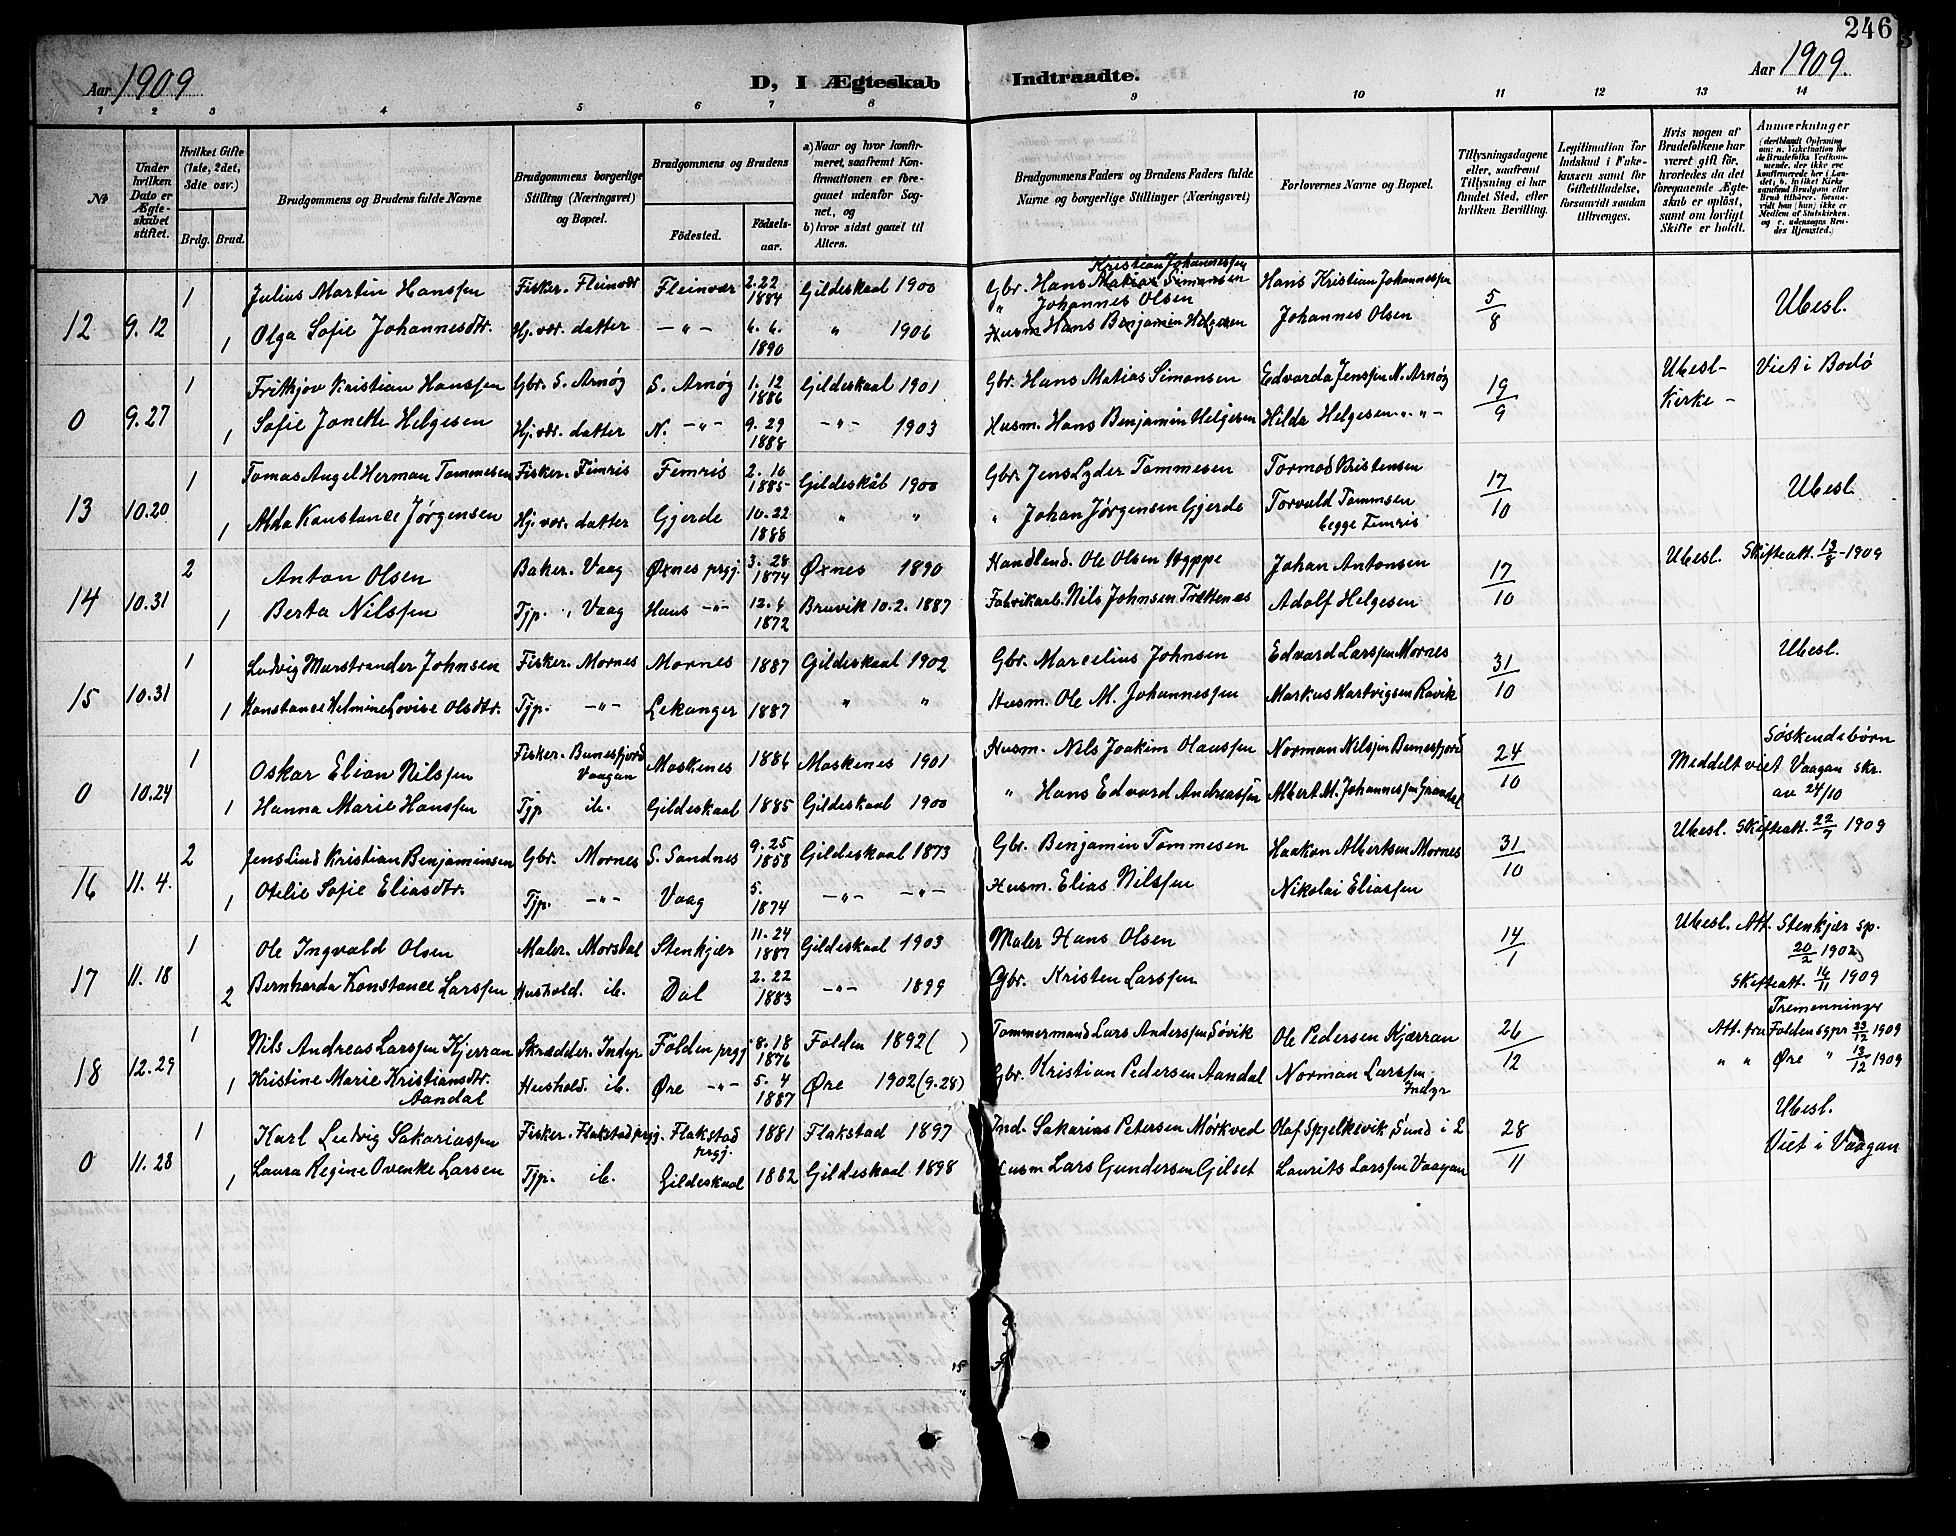 246
Aar 1909
D, I Ægteskab Indtraadte.
Aar 1909.
1 2 3 4 5 6 7 8 9 10 11 12 13 14
№
Under hvilken Dato er Ægteskabet stiftet.
Hvilket Gifte (1ste, 2det, 3die osv.)
Brdg. Brud.
Brudgommens og Brudens fulde Navne
Brudgommens borgerlige Stilling (Næringsvei) og Bopæl.
Brudgommens og Brudens
Födested. Födsels-aar.
a) Naar og hvor konfirmeret, saafremt Konfirmationen er foregaaet udenfor Sognet, og
b) hvor sidst gaaet til Alters.
Brudgommens Faders og Brudens Faders fulde Navne og borgerlige Stillinger (Næringsvei)
Forlovernes Navne og Bopæl.
Tillysningsdagene eller, saafremt Tillysning ei har fundet Sted, efter hvilken Bevilling.
Legitimation for Indskud i Enkekassen samt for Giftetilladelse, forsaavidt saadan tiltrænges.
Hvis nogen af Brudefolkene har været gift för, hvorledes da det foregaaende Ægteskab er oplöst, samt om lovligt Skifte er holdt.
Anmærkninger
1 Julius Martin Hanssen Fisker. Fleinvær Fleinvær 2.22 1884 Gildeskaal 1900 Gbr. Hans Kristian Johannessen Matias Simonsen Hans Kristian Johannessen 5/8 Ubesl.
12 9.12 1 Olga Sofie Johannesdtr. Hj.vær. datter —"— 6.6. 1890 " 1906 " Johannes Olsen Husm. Hans Benjamin Helgesen Johannes Olsen
1 Frithjov Kristian Hanssen Gbr. S. Arnøy S. Arnøy 1.12 1886 Gildeskaal 1901 Gbr. Hans Matias Simonsen Edvarda Jenssen N. Arnøy 19/9 Ubesl- Viet i Bodø
0 9.27 1 Sofie Janette Helgesen Hj.vær. datter N. —"— 9.29 1888 —"— 1903 Husm. Hans Benjamin Helgesen Hilda Helgesen "—"— Kirke —
1 Tomas Angel Herman Tommesen Fisker. Femris Femris 2.10 1885 Gildeskål 1900 Gbr. Jens Lyder Tommesen Tormod Kristensen 17/10 Ubesl.
13 10.20 1 Alda Konstance Jørgensen Hj.vær. datter Gjerde 10.22 1888 " " " Johan Jørgensen Gjerde Torvald Tommsen begge Femris
2 Anton Olsen Baker. Vaag Øxnes prgj. 3.28 1874 Øxnes 1890 Handlend. Ole Olsen Johan Antonsen 17/10 Ubesl. Skifteatt. 13/8 - 1909
14 10.31 1 Berta Nilssen Tjp. , Vaag Haus —"— 12.6 1872 Bruvik 10.2. 1887 Fabrikarb. Nils Johnsen Trættenes Adolf Helgesen
1 Ludvig Marstrander Johnsen Fisker. Mornes Mornes 1887 Gildeskaal 1902 Gbr. Marcelius Johnsen Edvard Larssen Mornes 31/10 Ubesl.
15 10.31 1 Konstance Helmine Lovise Olsdtr. Tjp. —"— Lekanger 1887 " " Husm. Ole M. Johannessen Markus Hartvigsen Ravik
1 Oskar Elian Nilssen Fisker. Bunesfjord Vaagan Moskenes 1886 Moskenes 1901 Husm. Nils Joakim Hanssen Norman Nilssen Bunesfjord 24/10 Søskendebørn
0 10.24 1 Hanna Marie Hanssen Tjp ib. Gildeskaal 1885 Gildeskaal 1900 " Hans Edvard Andreassen Albert M. Johannessen Meddelt viet Vaagan skr. av 24/10
2 Jens Lind Kristian Benjaminsen Gbr. Mornes S. Sandnes 9.25 1858 Gildeskaal 1873 Gbr. Benjamin Tommesen Haakon Albertsen Mornes 31/10 Ubesl. Skifteatt. 22/9 1909
16 11.4. 1 Otelie Sofie Eliasdtr. Tjp. —"— Vaag 5. 1874 —"— —"— Husm. Elias Nilssen Nikolai Eliassen
1 Ole Ingvald Olsen Maler. Morsdal Stenkjær 11.24 1887 Gildeskaal 1903 Maler Hans Olsen 14/1 Ubesl. Att. Stenkjær sp. 20/2 1902
17 11.18 2 Bernharda Konstance Larssen Hushold. ib. Dal 2.22 1883 —"— 1899 Gbr. Kristen Larssen Skifteatt. 16/11 1909
1 Nils Andreas Larssen Kjerran Skrædder. Indyr Folden prgj. 8.18 1876 Folden 1892 ( ) Tømmermand Lars Anderssen Søvik Ole Pedersen Kjærran 26/12 Tremenninger Att. fra Folden sgpr 23/12 1909
18 12.29 1 Kristine Marie Kristiansdtr. Aandal Hushold. ib. Øre —"— 5.4 1887 Øre 1902 (9.28) Gbr. Kristian Pedersen Aandal Norman Larssen Indyr " " Øre " 13/12 1909
1 Karl Ludvig Sakariassen Fisker. Flakstad prgj. Flakstad prgj. 1881 Flakstad 1897 Ind. Sakarias Petersen Mørkved Olaf Spjelkevik, Sund i L 28/11 Ubesl.
0 11.28 1 Laura Regine Ovenke Larsen Tjp. ib. Gildeskaal 1882 Gildeskaal 1898 Husm Lars Gundersen Gilset Laurits Larssen Vaagan Viet i Vaagan